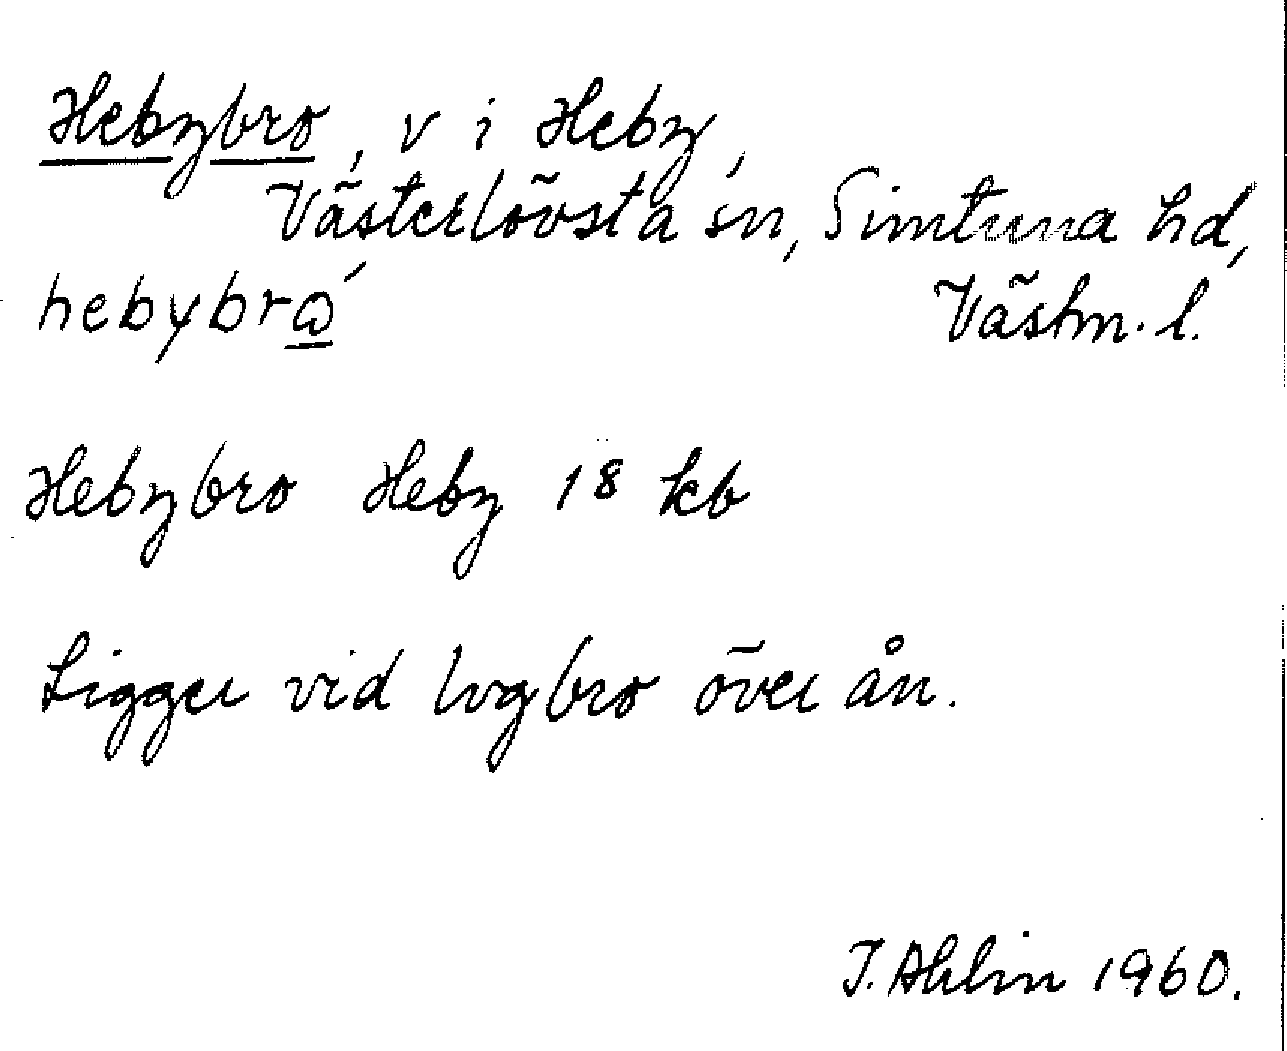 Hebybro, v i Heby,
Västerlövsta sn, Simtuna hd,
hebybrώ Västm. l.
Hebybro Heby 18 kb
Ligger vid lvgbro över ån.
I. Ahlin 1960.